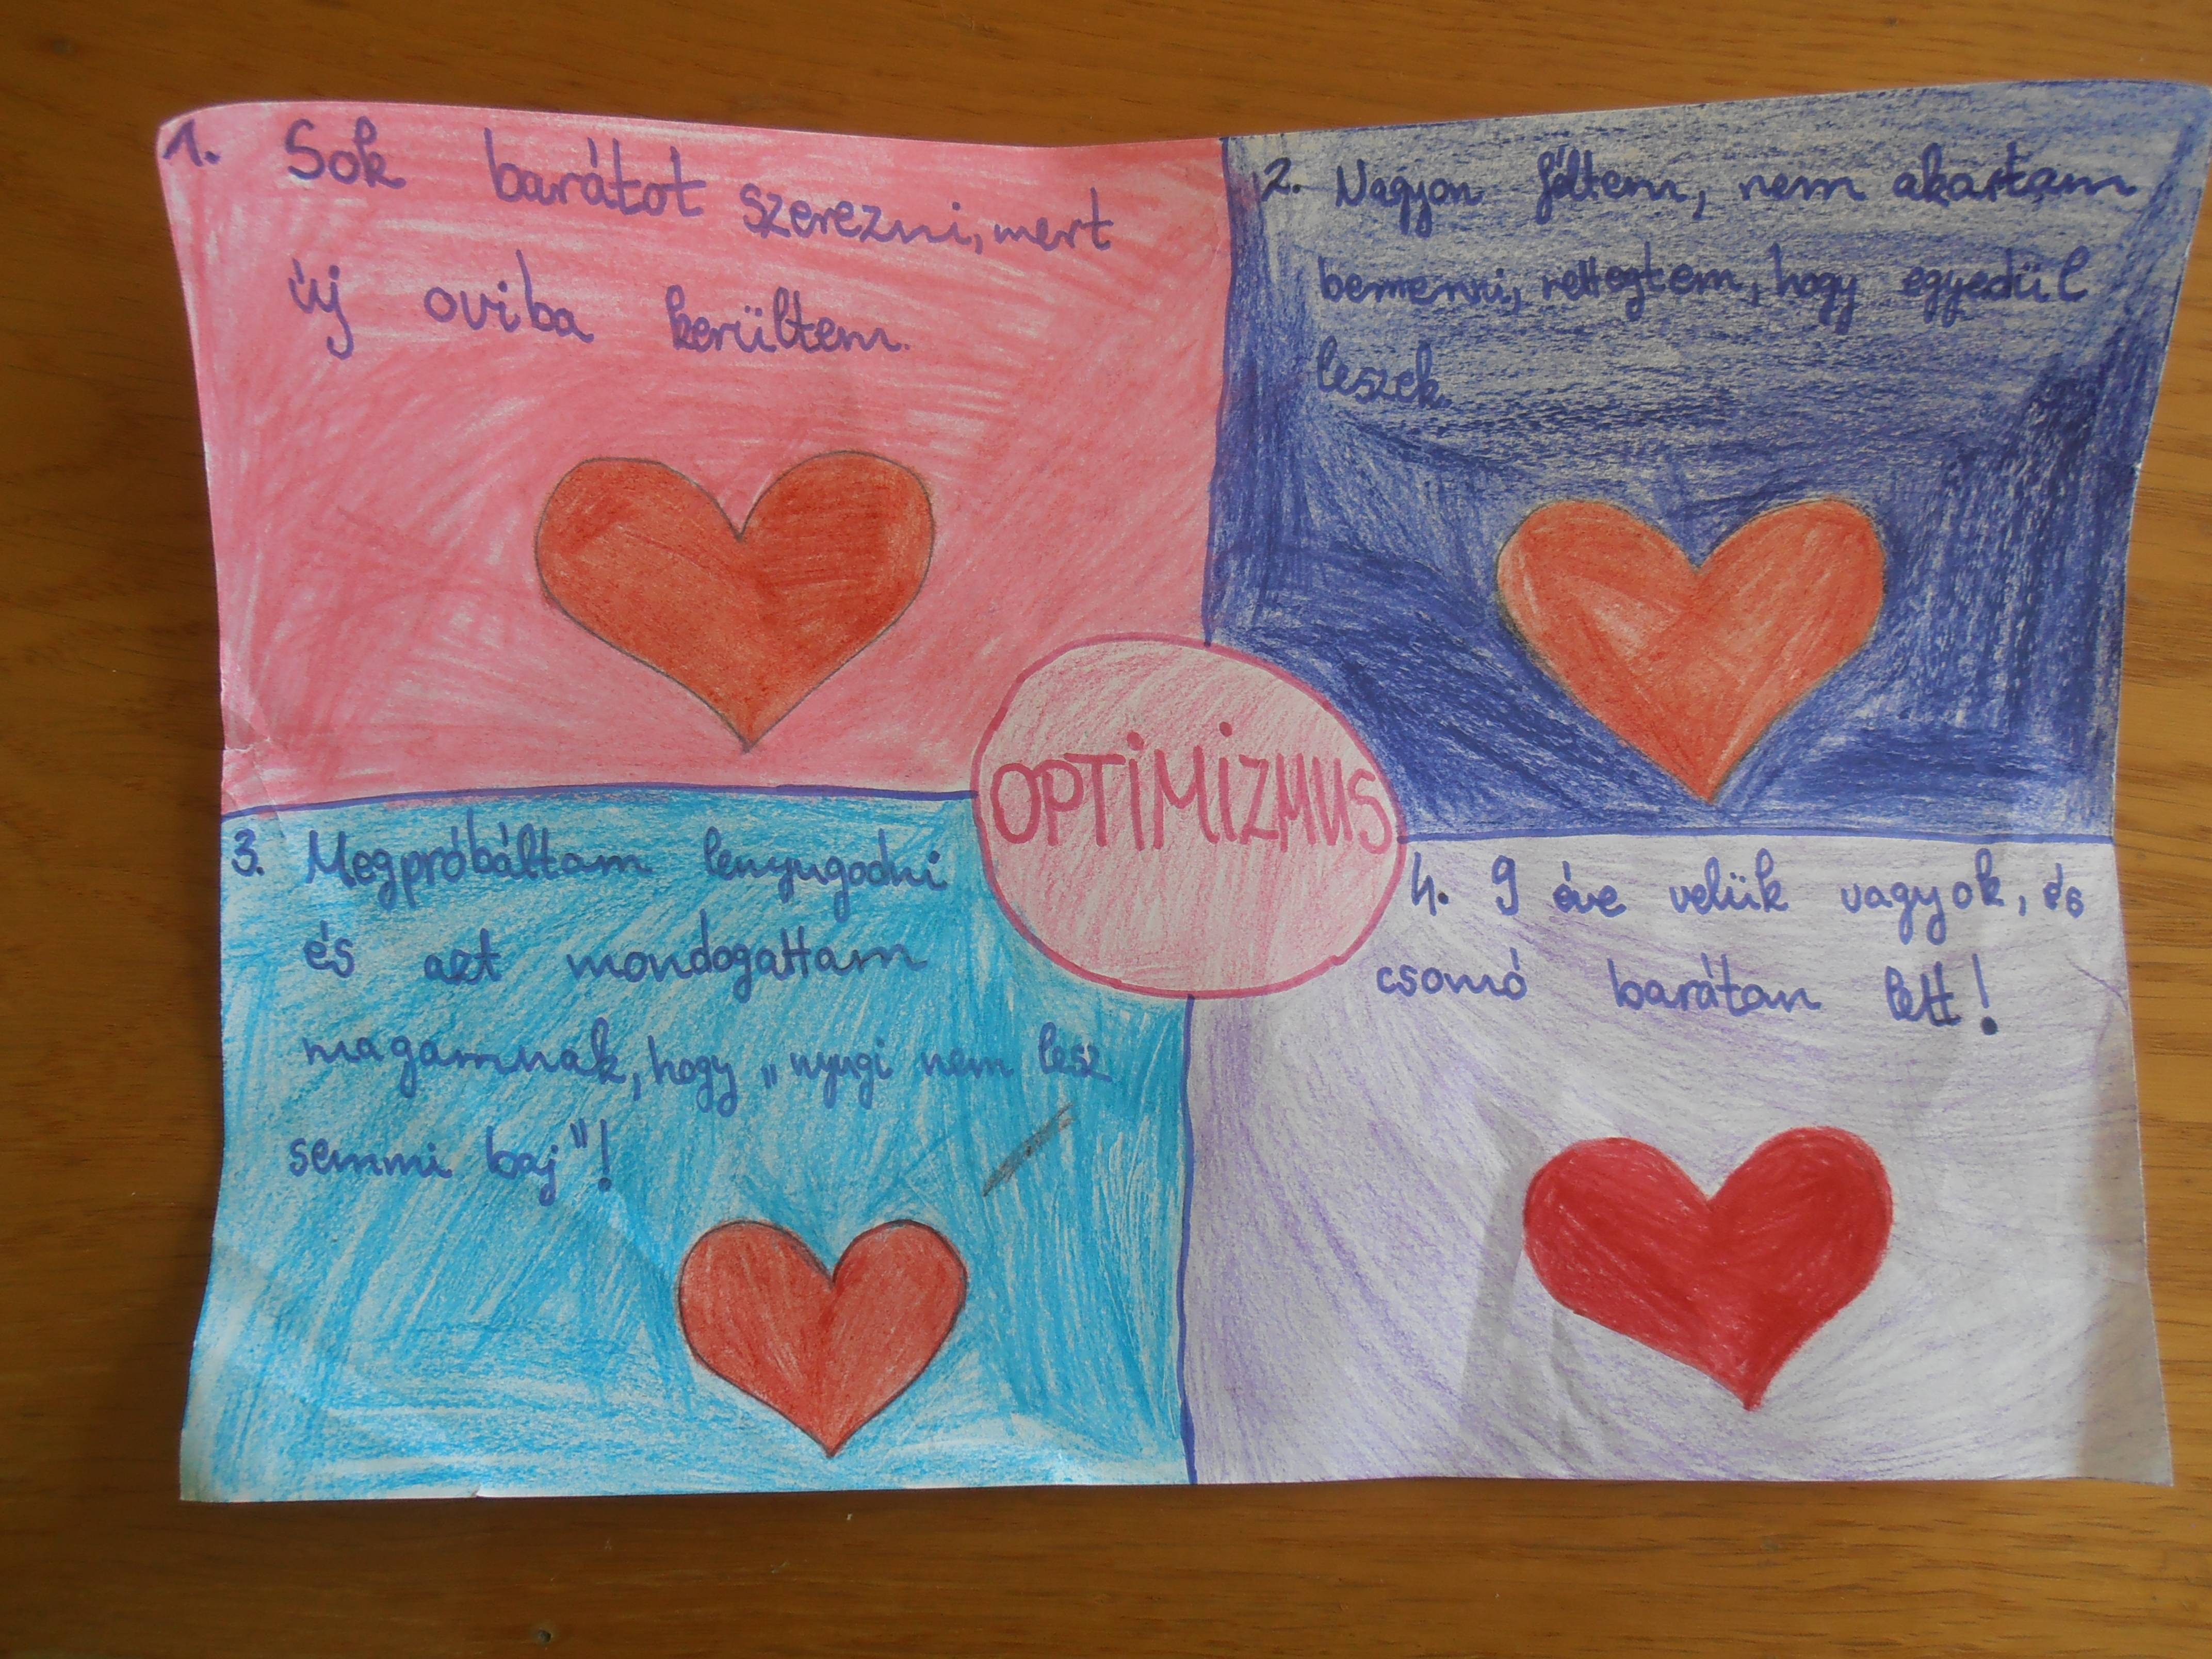 1. Sok barátot szerezni, mert
új oviba kerültem.
2. Nagyon féltem, nem akartam
bemenni, rettegtem, hogy egyedül
leszek.
OPTIMIZMUS
3. Megpróbáltam lenyugodni
és azt mondogattam
magamnak, hogy „nyugi nem lesz
semmi baj"!
4. 9 éve velük vagyok, és
csomó barátan lett!